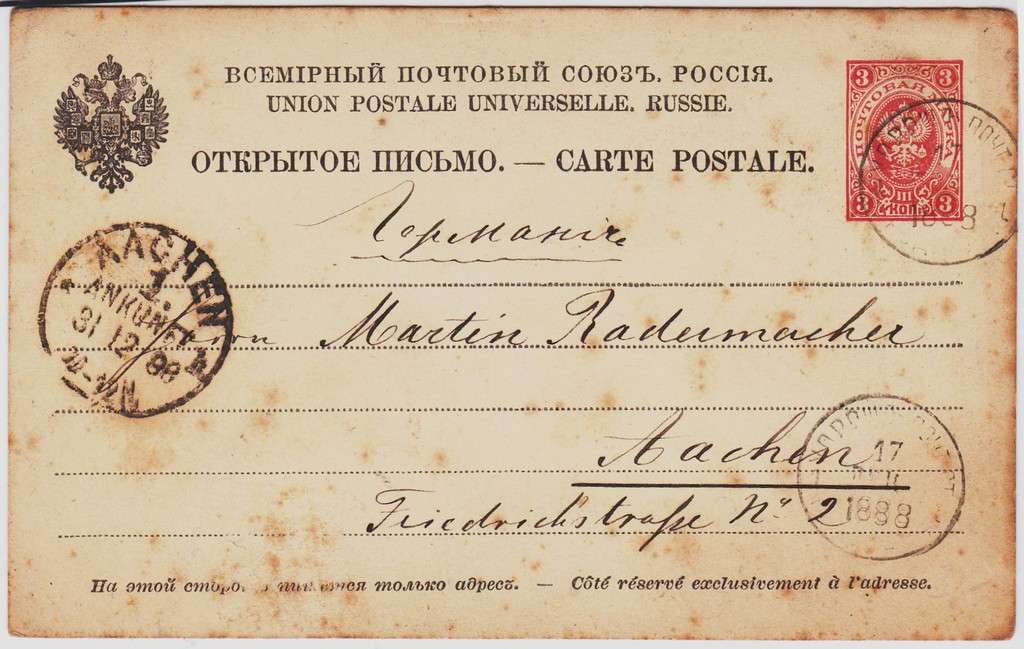 ВСЕМІРНЫЙ ПОЧТОВЫЙ СОЮЗЪ. РОССІЯ.
UNION POSTALE UNIVERSELLE. RUSSIE.
ОТКРЫТОЕ ПИСЬМО. — CARTE POSTALE.
3 3
ПОЧТОВАЯ МАРКА
3 КОП. 3
1888
Германія
AACHEN
1.
ANKUNFT
31 12 88
Herrn Martin Radermacher
Aachen
17
1888
Friedrichstraße No 2
На этой сторонѣ пишется только адресъ. — Côté réservé exclusivement à l'adresse.